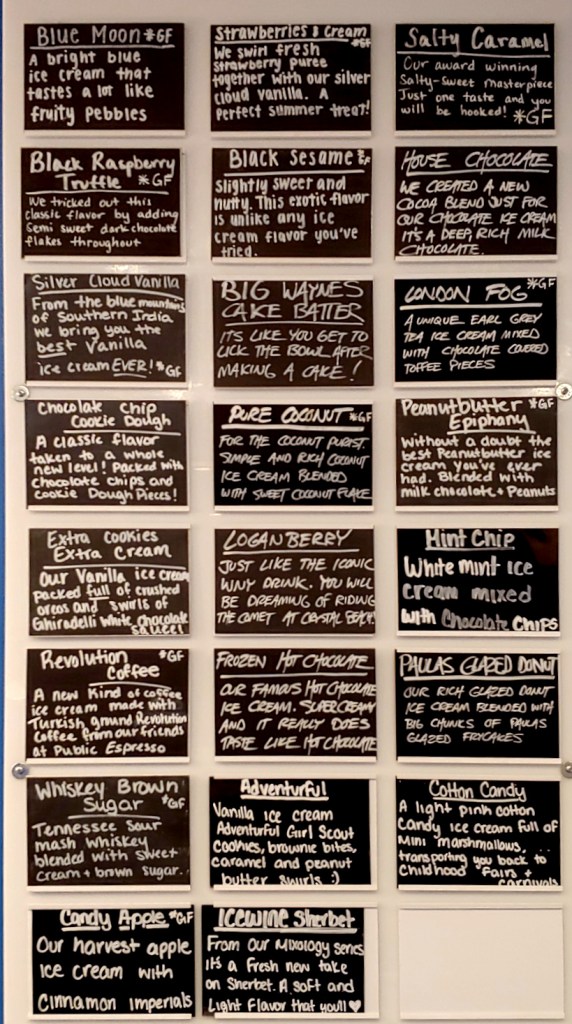 Blue Moon *GF
A bright blue
ice cream that
tastes a lot like
fruity pebbles
Strawberries & Cream
*GF
We swirl fresh
strawberry puree
together with our silver
cloud vanilla. A
perfect summer treat!
Salty Caramel
Our award winning
Salty-sweet masterpiece
Just one taste and you
will be hooked! *GF
Black Raspberry
Truffle *GF
We tricked out this
classic flavor by adding
semi sweet dark chocolate
flakes throughout
Black Sesame *GF
slightly sweet and
nutty. This exotic flavor
is unlike any ice
cream flavor you've
tried.
HOUSE CHOCOLATE
WE CREATED A NEW
COCOA BLEND JUST FOR
OUR CHOCOLATE ICE CREAM
IT'S A DEEP, RICH MILK
CHOCOLATE.
Silver Cloud Vanilla
From the blue mountains
of Southern India
we bring you the
best Vanilla
ice cream EVER! *GF
BIG WAYNES
CAKE BATTER
IT'S LIKE YOU GET TO
LICK THE BOWL AFTER
MAKING A CAKE!
*GF
LONDON FOG
A UNIQUE EARL GREY
TEA ICE CREAM MIXED
WITH CHOCOLATE COVERED
TOFFEE PIECES
Chocolate Chip
Cookie Dough
A classic flavor
taken to a whole
new level! Packed with
chocolate chips and
cookie Dough Pieces!
PURE COCONUT *GF
FOR THE COCONUT PURIST
SIMPLE AND RICH COCONUT
ICE CREAM BLENDED
WITH SWEET COCONUT FLAKE
Peanutbutter *GF
Epiphany
Without a doubt the
best Peanutbutter ice
cream you've ever
had. Blended with
milk chocolate + Peanuts
Extra Cookies
Extra Cream
Our Vanilla ice cream
packed full of crushed
oreos and swirls of
Ghiradelli white chocolate
sauce!
LOGANBERRY
JUST LIKE THE ICONIC
WNY DRINK. YOU WILL
BE DREAMING OF RIDING
THE COMET AT CRYSTAL BEACH
Mint Chip
White mint ice
cream mixed
with Chocolate CHIPS
Revolution *GF
Coffee
A new Kind of coffee
ice cream made with
Turkish ground Revolution
Coffee from our friends
at Public Espresso
FROZEN HOT CHOCOLATE
OUR FAMOUS HOT CHOCOLATE
ICE CREAM. SUPER CREAMY
AND IT REALLY DOES
TASTE LIKE HOT CHOCOLATE
PAULAS GLAZED DONUT
OUR RICH GLAZED DONUT
ICE CREAM BLENDED WITH
BIG CHUNKS OF PAULAS
GLAZED FRYCAKES
Whiskey Brown
Sugar *GF
Tennessee Sour
mash Whiskey
blended with sweet
cream + brown sugar.
Adventurful
Vanilla ice cream
Adventurful Girl Scout
cookies, brownie bites,
caramel and peanut
butter swirls :)
Cotton Candy
A light pink cotton
candy ice cream full of
Mini marshmallows,
transporting you back to
childhood fairs +
carnivals
Candy Apple *GF
Our harvest apple
ice cream with
Cinnamon imperials
ICEWINE Sherbet
From our Mixology series
It's a Fresh new take
on Sherbet. A soft and
Light Flavor that youll ♥